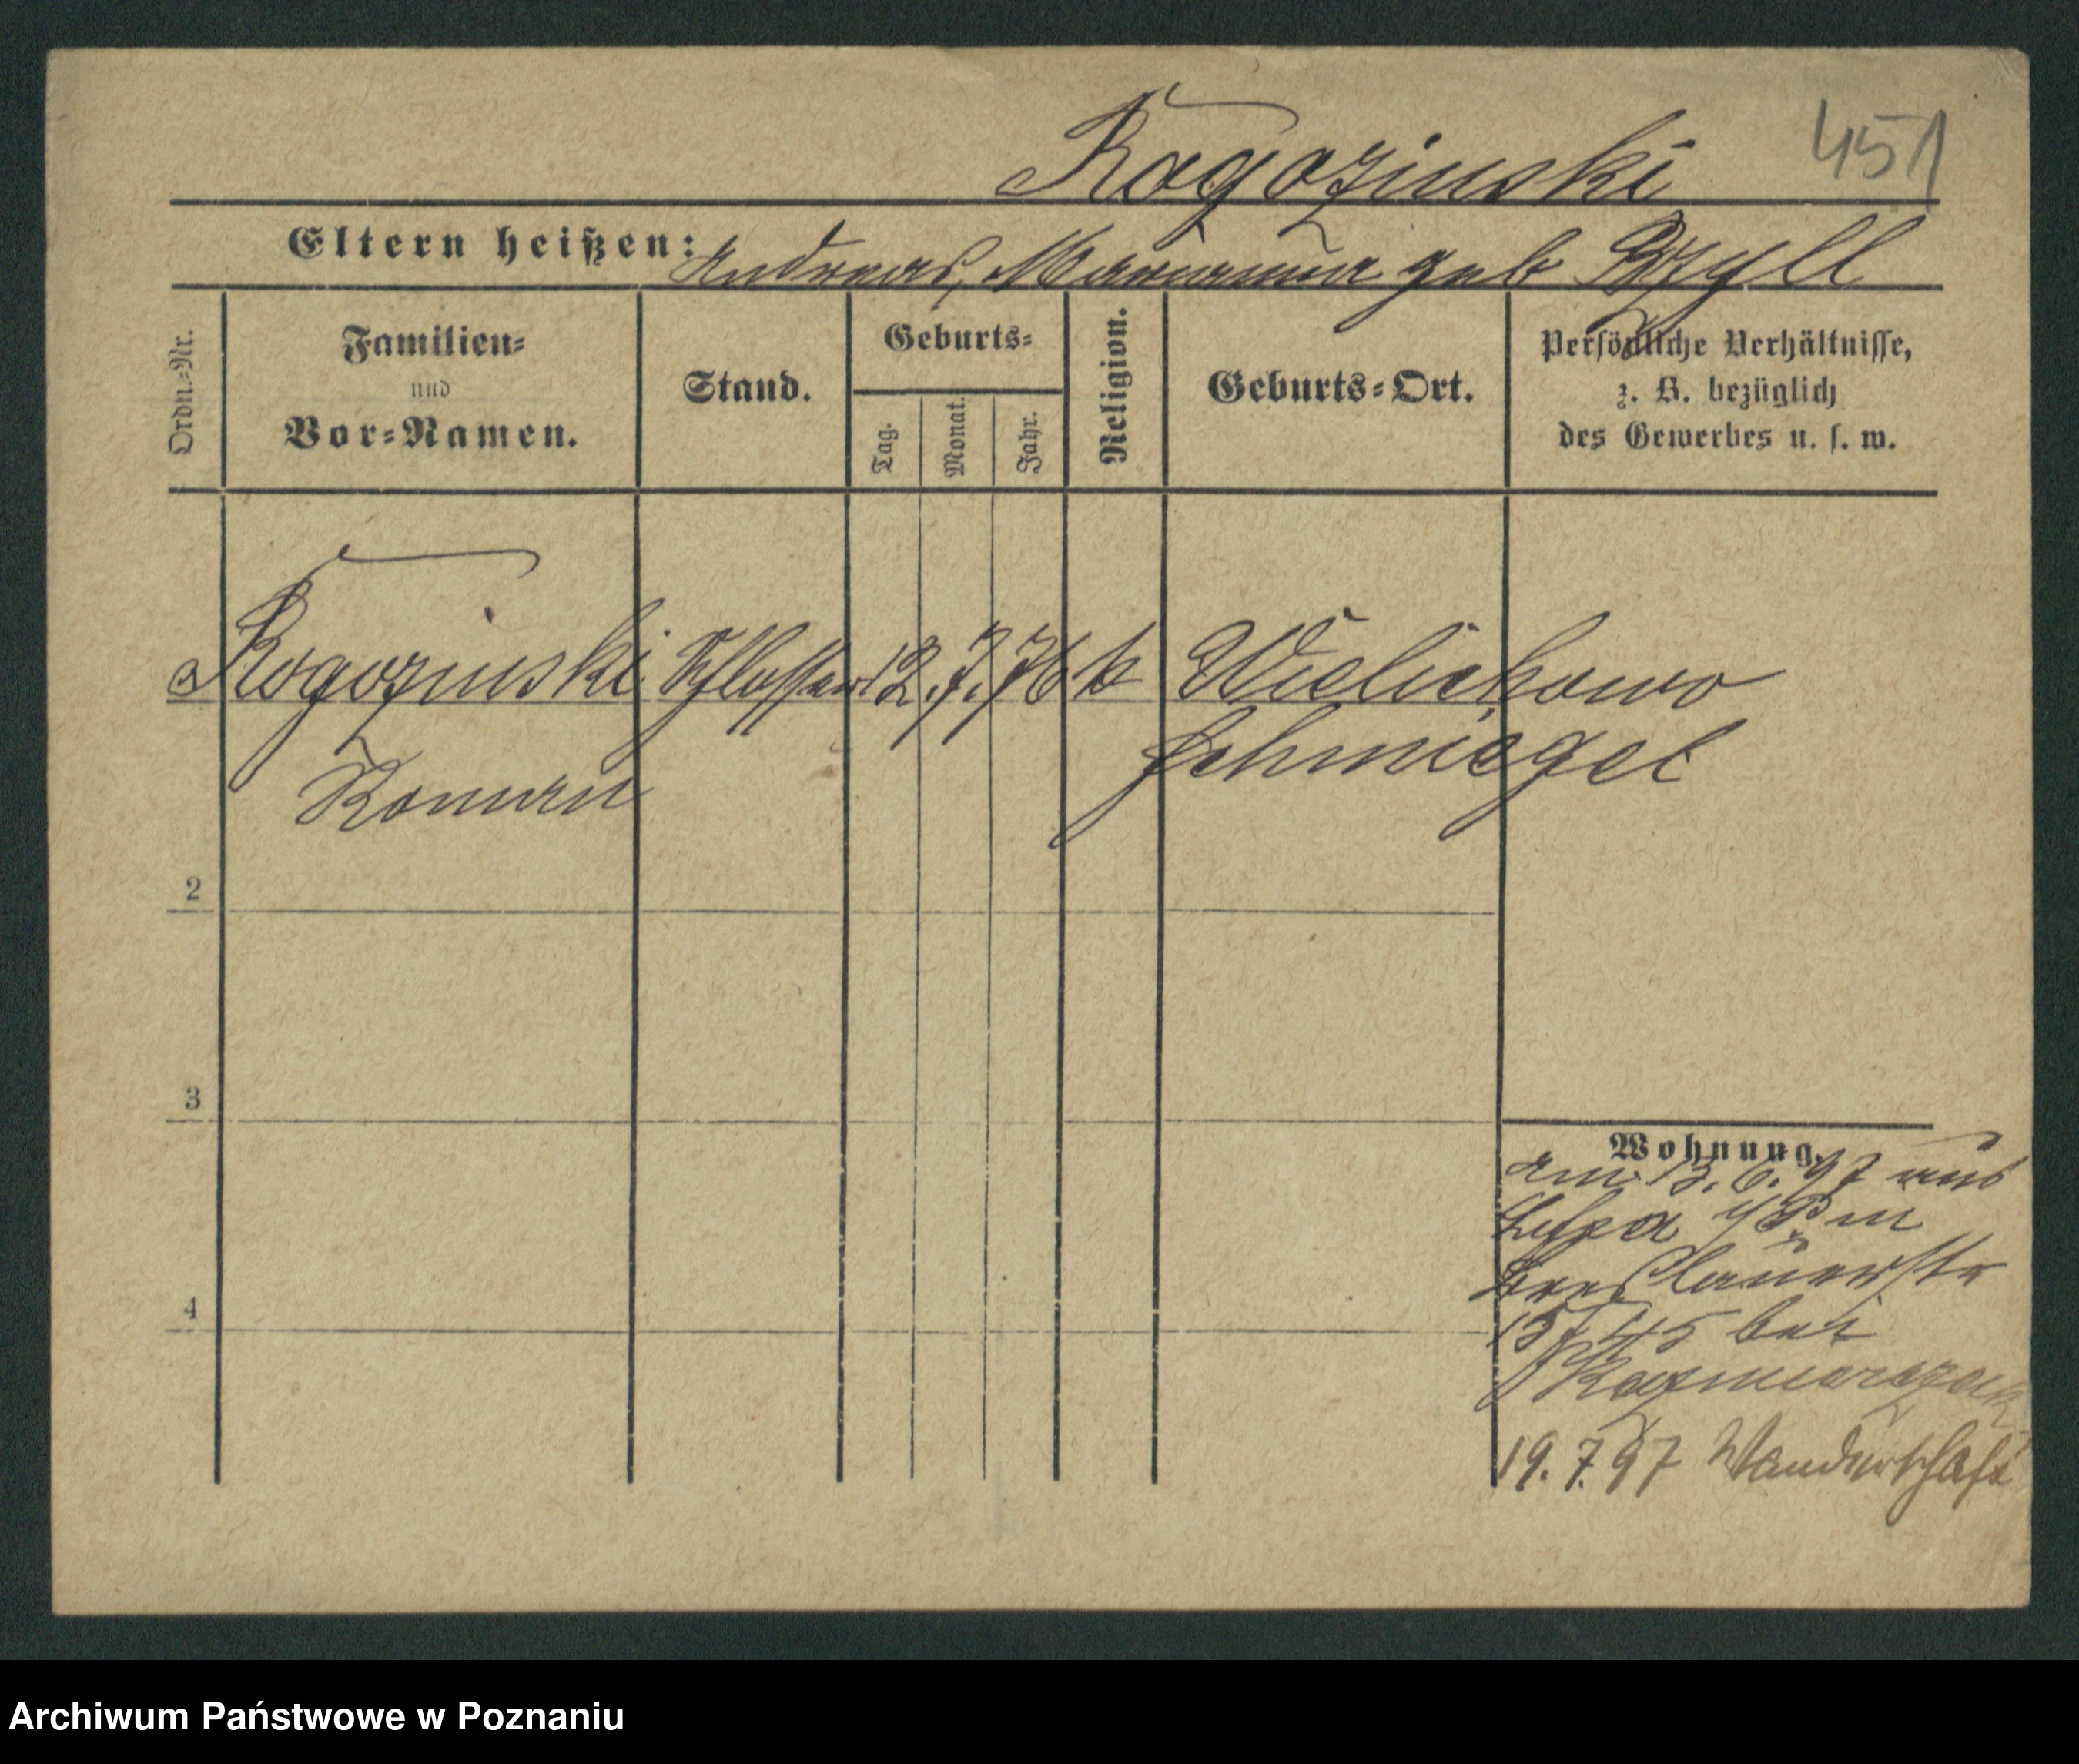 Rogozinski 451
Eltern heißen: Andreas, Marianna geb Bzyll
Ordn.=Nr.
Familien=
und
Vor=Namen.
Stand.
Geburts=
Tag.
Monat.
Jahr.
Religion.
Geburts=Ort.
Persönliche Verhältnisse,
z. B. bezüglich
des Gewerbes u. s. w.
Rogozinski Schlosser 12. 7. 76 k Wielichowo
Schmiegel
Roman
2
3
4
Wohnung.
am 13. 6. 97 aus
in
Breslauerstr
bei
Kazmierczak
19. 7. 97 Wanderschaft
Archiwum Państwowe w Poznaniu